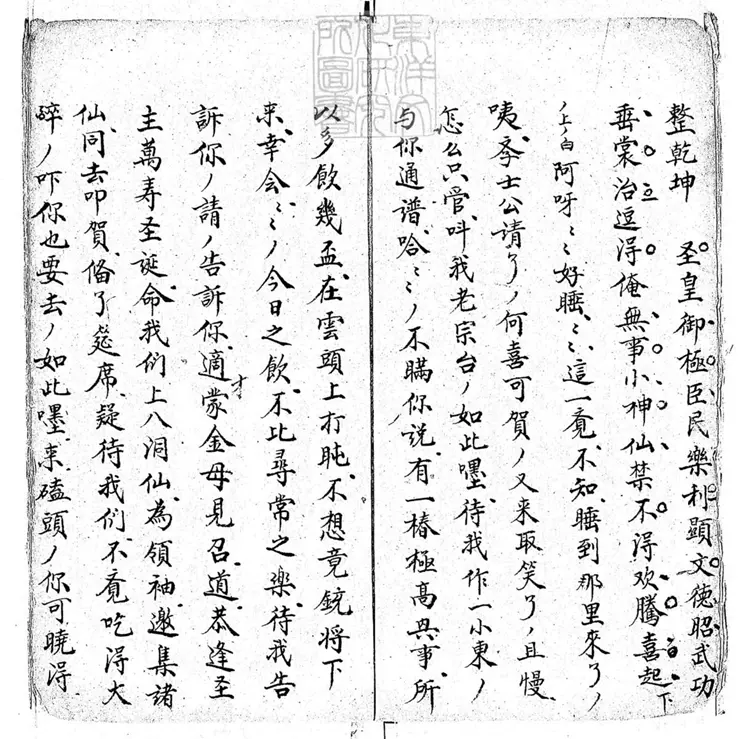 整乾坤　圣皇御極臣民樂利顯文德昭武功
垂裳治逗浔俺無事小神仙禁不得欢騰喜起下
ノ上ノ白阿呀〻〻好睡〻〻這一覔不知睡到那里來了ノ
咦李士公請了ノ何喜可賀ノ又来取笑了ノ且慢
怎么只管呌我老宗台ノ如此嚜待我作一小東ノ
与你通谱哈〻〻ノ不瞞你说有一樁極高兴事所
以多飲幾盃在雲頭上打盹不想竟銃将下
来幸会〻〻ノ今日之飲不比尋常之樂待我告
訴你ノ請ノ告訴你適才蒙金母見召道恭逢圣
主萬寿圣诞命我们上八洞仙為領袖邀集諸
仙同去叩賀俻了筵席疑待我们不覔吃浔大
碎ノ吓你也要去ノ如此嚜来磕頭ノ你可曉浔
東洋文化研究所圖書